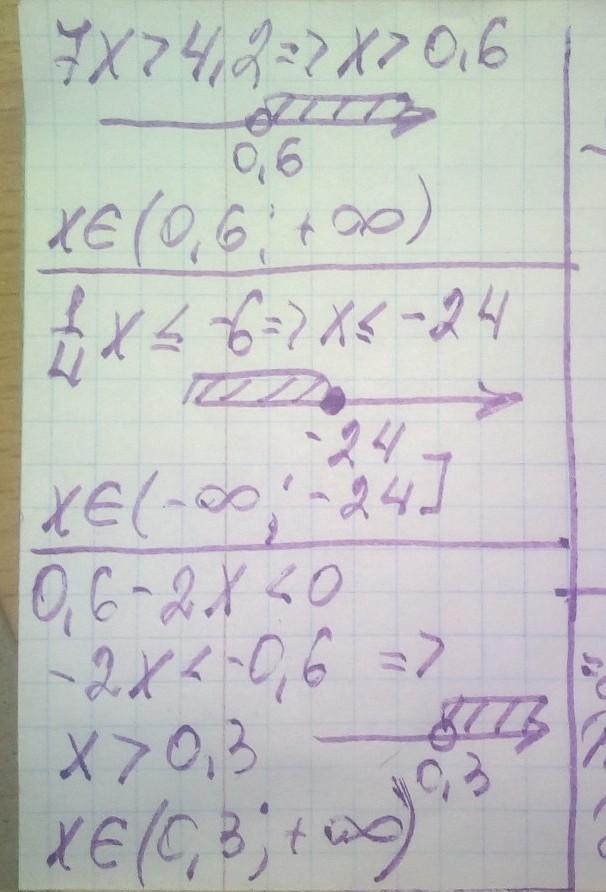 7x > 4,2 => x > 0,6
0,6
x∈(0,6; +∞)
1/4 x ≤ -6 => x ≤ -24
-24
x∈(-∞; -24]
0,6 - 2x < 0
-2x < -0,6 =>
x > 0,3
0,3
x∈(0,3; +∞)